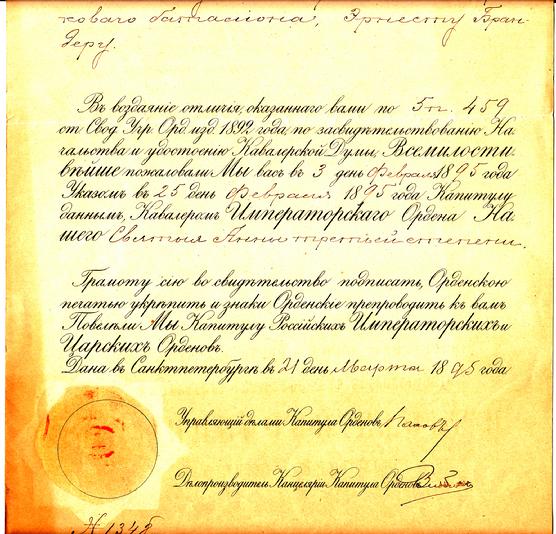 коваго баталiона, Эрнесту Бран-
деру.
Въ воздаянiе отличiя, оказаннаго вами по 5 п. 459
ст. Свод. Учр. Орд. изд. 1892 года, по засвидѣтельствованiю На
чальства и удостоенiю Кавалерской Думы, Всемилости
вѣйше пожаловали Мы васъ въ 3 день Февраля 1895 года
Указомъ въ 25 день Февраля 1895 года Капитулу
даннымъ, Кавалеромъ Императорскаго Ордена На
шего Святыя Анны третьей степени.
Грамоту сiю во свидѣтельство подписать, Орденскою
печатью укрѣпить и знаки Орденскiе препроводить къ вамъ
Повелѣли Мы Капитулу Россiйскихъ Императорскихъ и
Царскихъ Орденовъ.
Дана въ Санктпетербургѣ въ 21 день Марта 1895 года
Управляющiй дѣлами Капитула Орденовъ
Дѣлопроизводитель Канцелярiи Капитула Орденовъ
№ 1348